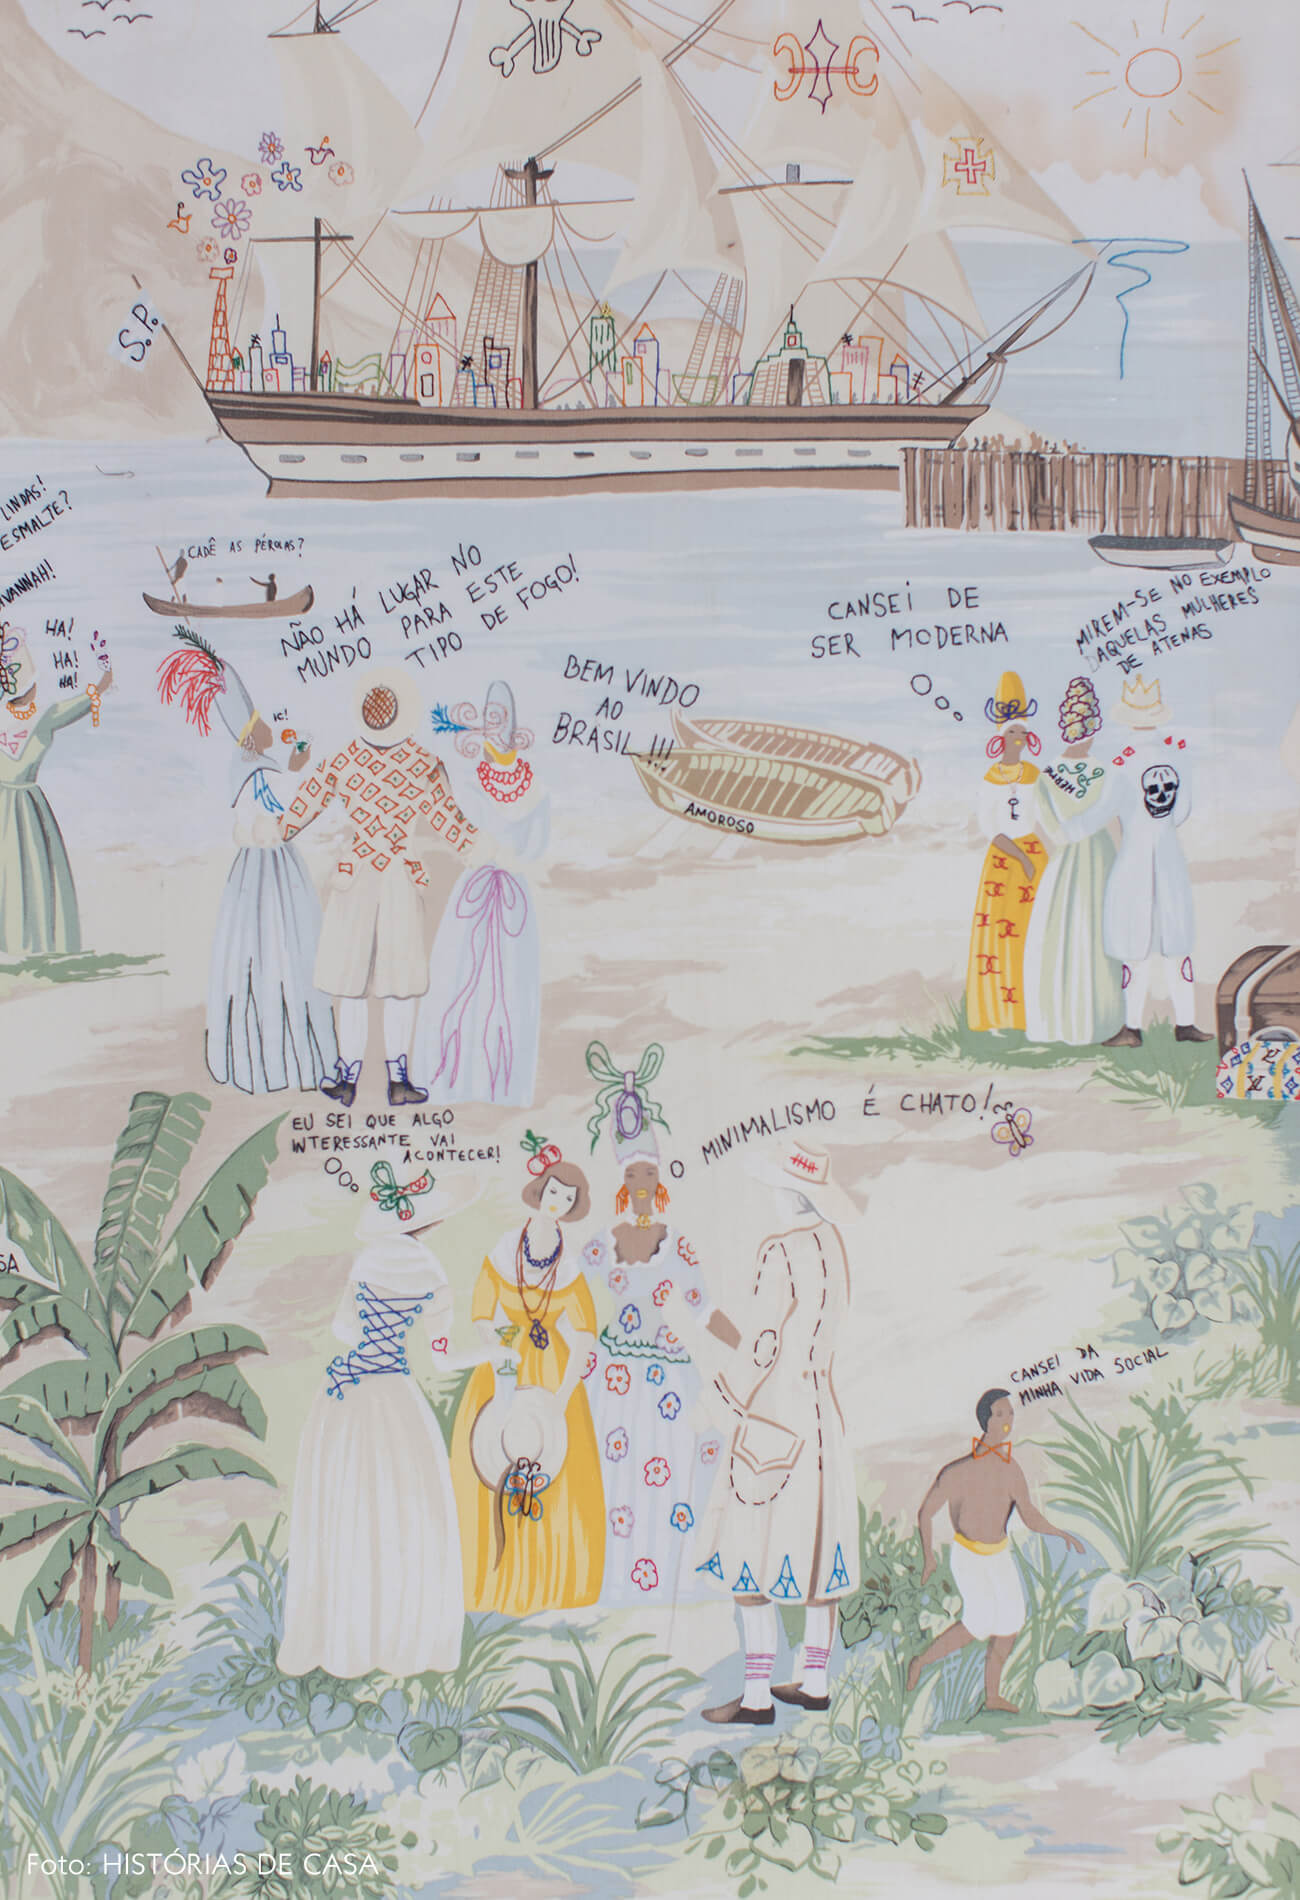 S.P.
LINDAS!
ESMALTE?
HA!
HA!
HA!
CADÊ AS PÉROLAS?
NÃO HÁ LUGAR NO
MUNDO PARA ESTE
TIPO DE FOGO!
IC!
BEM VINDO
AO
BRASIL!!!
AMOROSO
CANSEI DE
SER MODERNA
MIREM-SE NO EXEMPLO
DAQUELAS MULHERES
DE ATENAS
EU SEI QUE ALGO
INTERESSANTE VAI
ACONTECER!
MINIMALISMO É CHATO!
CANSEI DA
MINHA VIDA SOCIAL
LV
Foto: HISTÓRIAS DE CASA